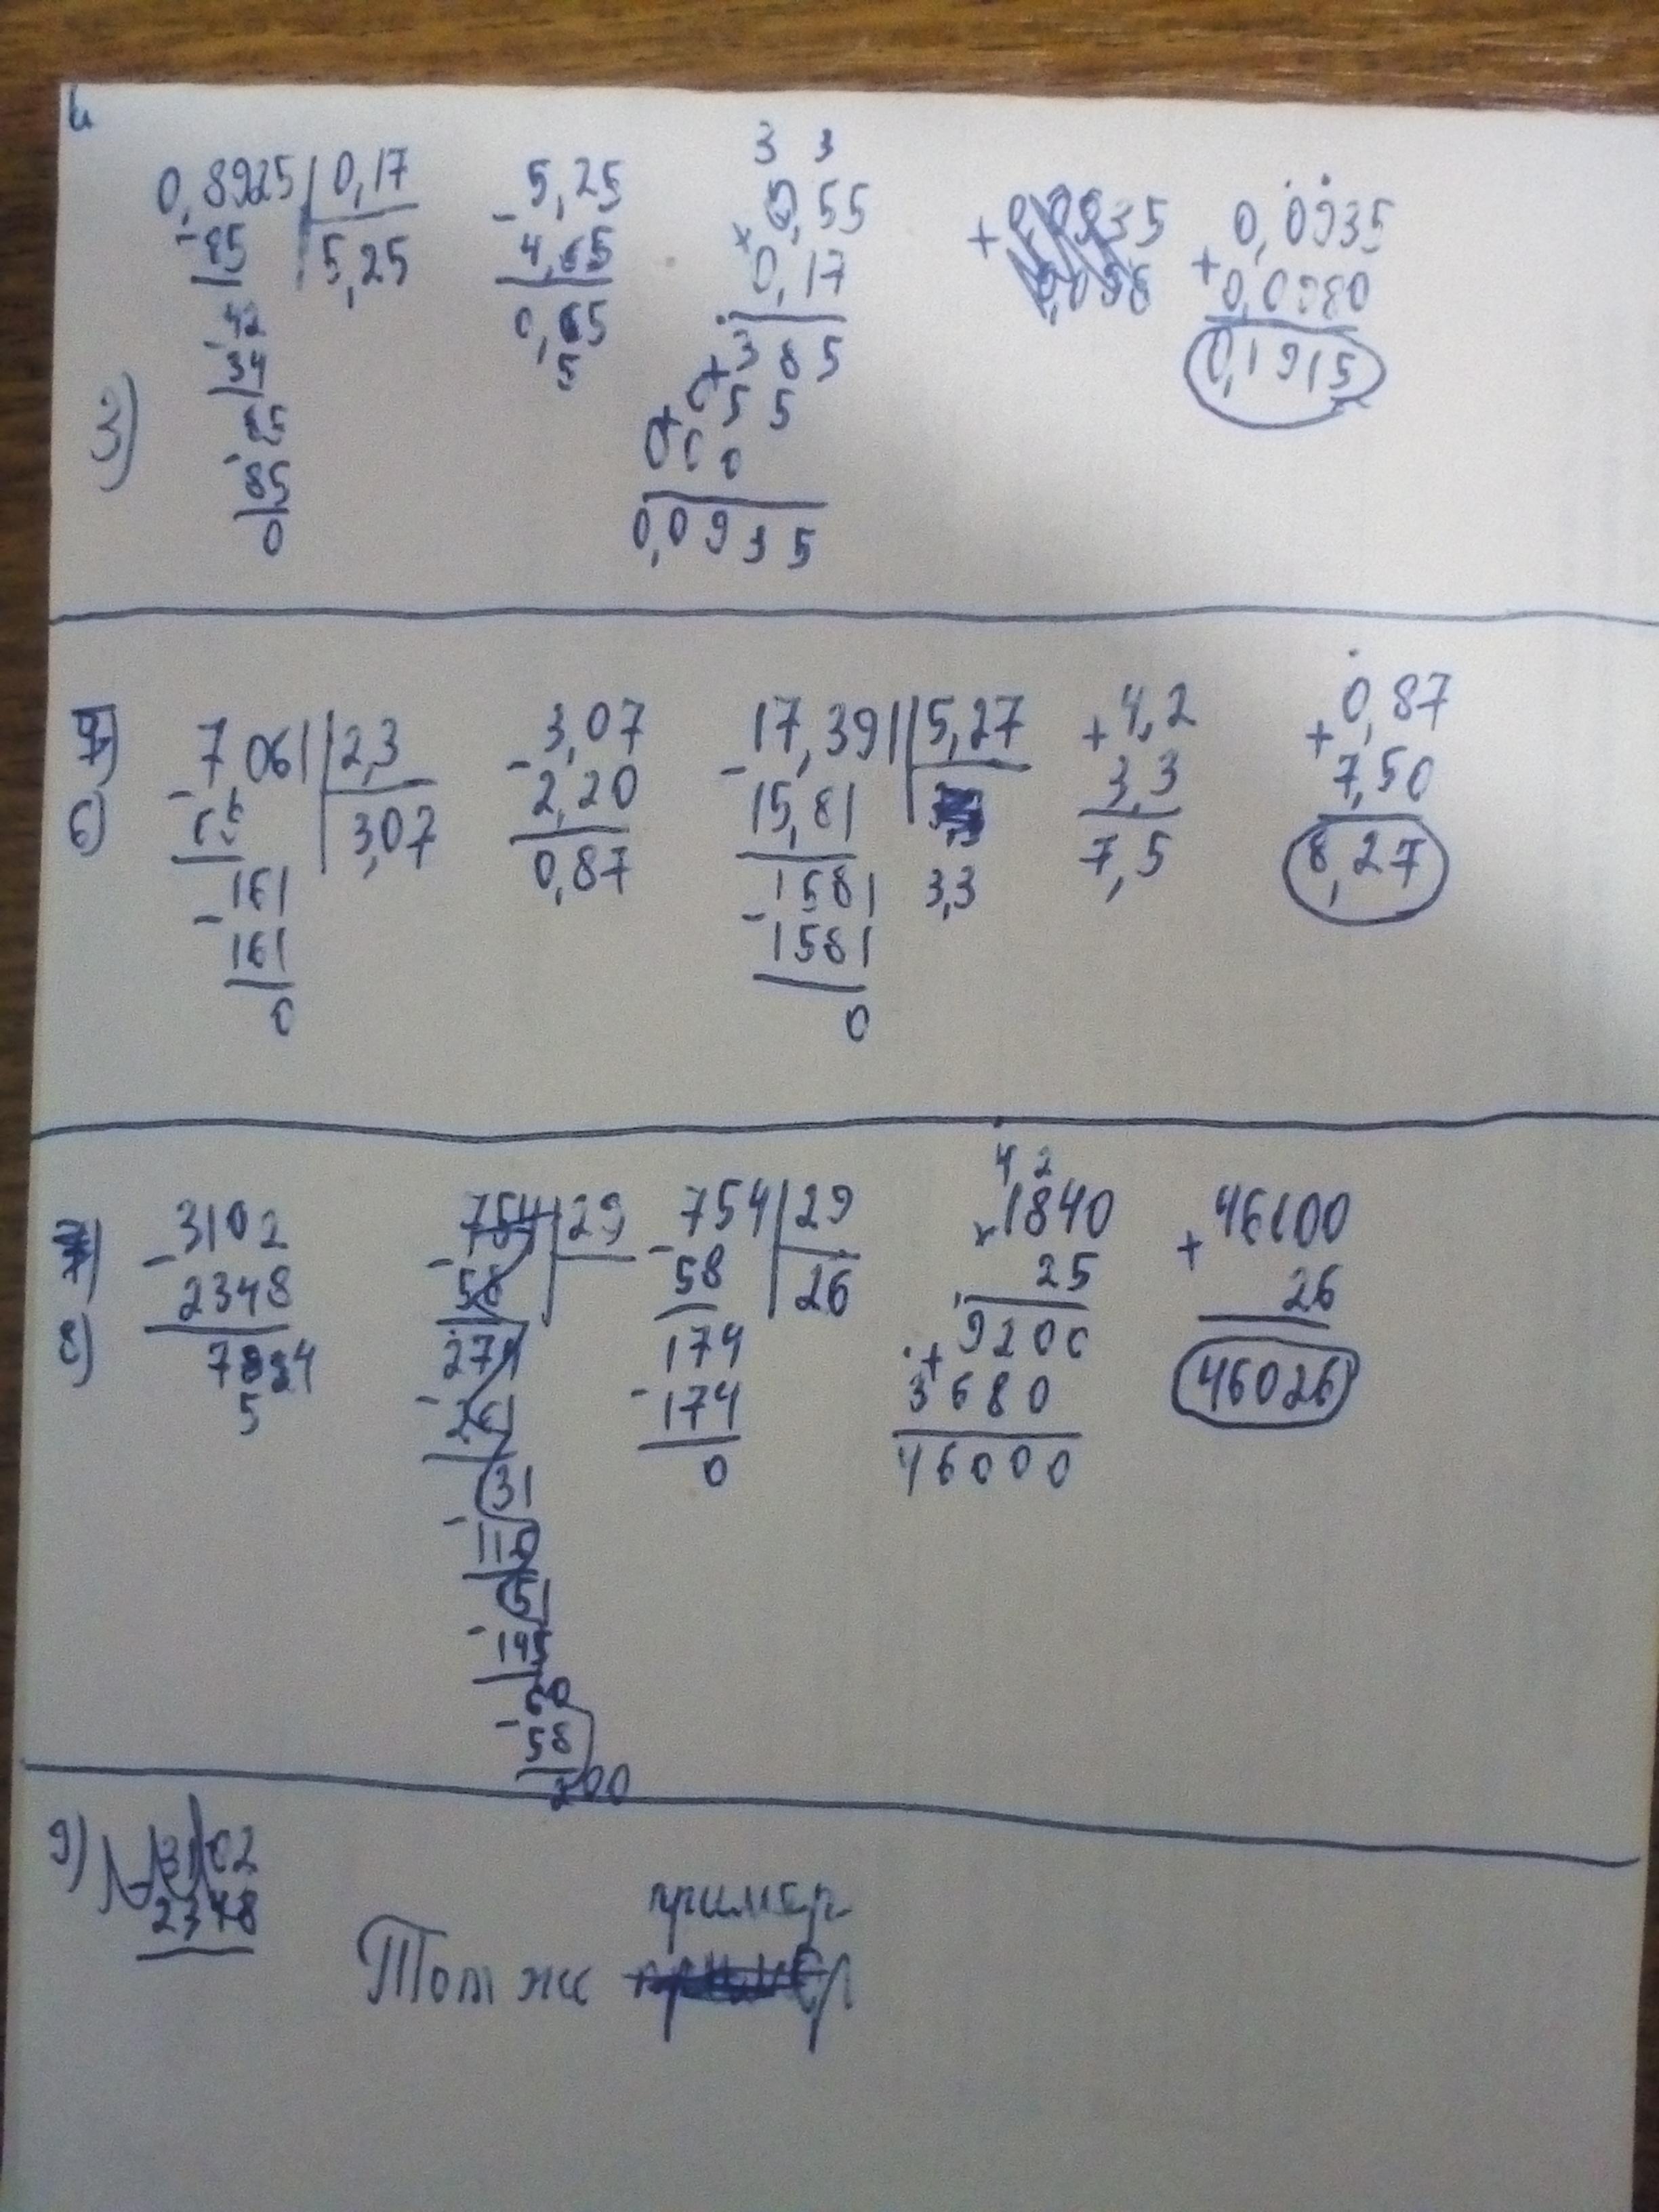 3)
0,8925 | 0,17
- 85
5,25
- 42
34
- 85
85
0
- 5,25
4,65
0,65
5
3 3
0,55
× 0,17
+ 385
+ 055
000
0,0935
+ 0,0935
0,098
0,0935
+ 0,0980
0,1915
6)
7,061 | 2,3
- 69
3,07
161
- 161
0
- 3,07
2,20
0,87
17,391 | 5,27
- 15,81
3,3
1581
- 1581
0
+ 4,2
3,3
7,5
0,87
+ 7,50
8,27
8)
- 3102
2348
7824
5
754 | 29
- 58
274
- 261
131
- 116
151
- 145
60
- 58
200
754 | 29
- 58
26
174
- 174
0
4 2
1840
× 25
9200
+ 3680
46000
+ 46000
26
46026
9)
- 3102
2348
пример
Тот же пример